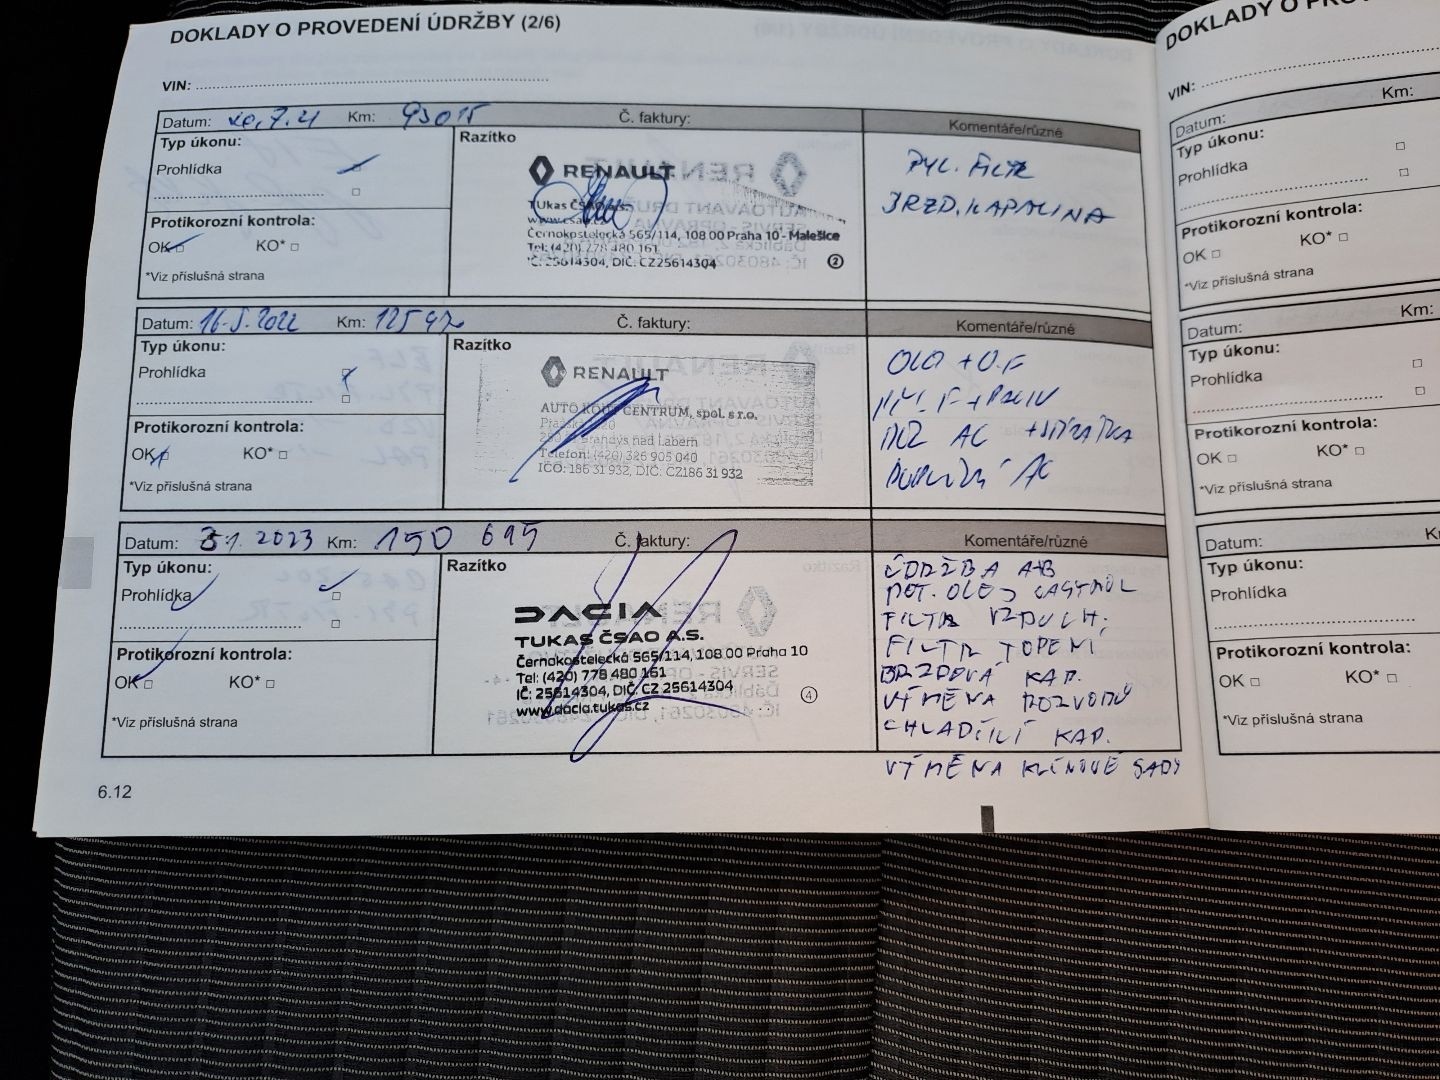 DOKLADY O PROVEDENÍ ÚDRŽBY (2/6)
VIN:
Datum: 7.21 Km: 93015 Č. faktury: Komentáře/různé
Typ úkonu:
Prohlídka
Protikorozní kontrola:
OK KO*
*Viz příslušná strana
Razítko
RENAULT
TUkas ČSAO a.s.
Černokostelecká 565/114, 108 00 Praha 10 - Malešice
Tel: (420) 778 480 161
IČ: 25614304, DIČ: CZ25614304
2
PYL. FILTR
BRZD. KAPALINA
Datum: 16.5.2022 Km: Č. faktury: Komentáře/různé
Typ úkonu:
Prohlídka
Protikorozní kontrola:
OK KO*
*Viz příslušná strana
Razítko
RENAULT
AUTO KOUT CENTRUM, spol. s r.o.
Brandýs nad Labem
Telefon: (420) 326 905 040
IČO: 186 31 932, DIČ: CZ186 31 932
OLEJ + O.F
AC
AC
Datum: 2023 Km: 150 695 Č. faktury: Komentáře/různé
Typ úkonu:
Prohlídka
Protikorozní kontrola:
OK KO*
*Viz příslušná strana
Razítko
DACIA
TUKAS ČSAO A.S.
Černokostelecká 565/114, 108 00 Praha 10
Tel: (420) 778 480 161
IČ: 25614304, DIČ: CZ 25614304
www.dacia.tukas.cz
4
ÚDRŽBA A+B
MOT. OLEJ CASTROL
FILTR VZDUCH.
FILTR TOPENÍ
BRZDOVÁ KAP.
VÝMĚNA ROZVODŮ
CHLADÍCÍ KAP.
VÝMĚNA KLÍNOVÉ SADY
6.12
VIN:
Datum: Km:
Typ úkonu:
Prohlídka
Protikorozní kontrola:
OK KO*
*Viz příslušná strana
Datum: Km:
Typ úkonu:
Prohlídka
Protikorozní kontrola:
OK KO*
*Viz příslušná strana
Datum:
Typ úkonu:
Prohlídka
Protikorozní kontrola:
OK KO*
*Viz příslušná strana